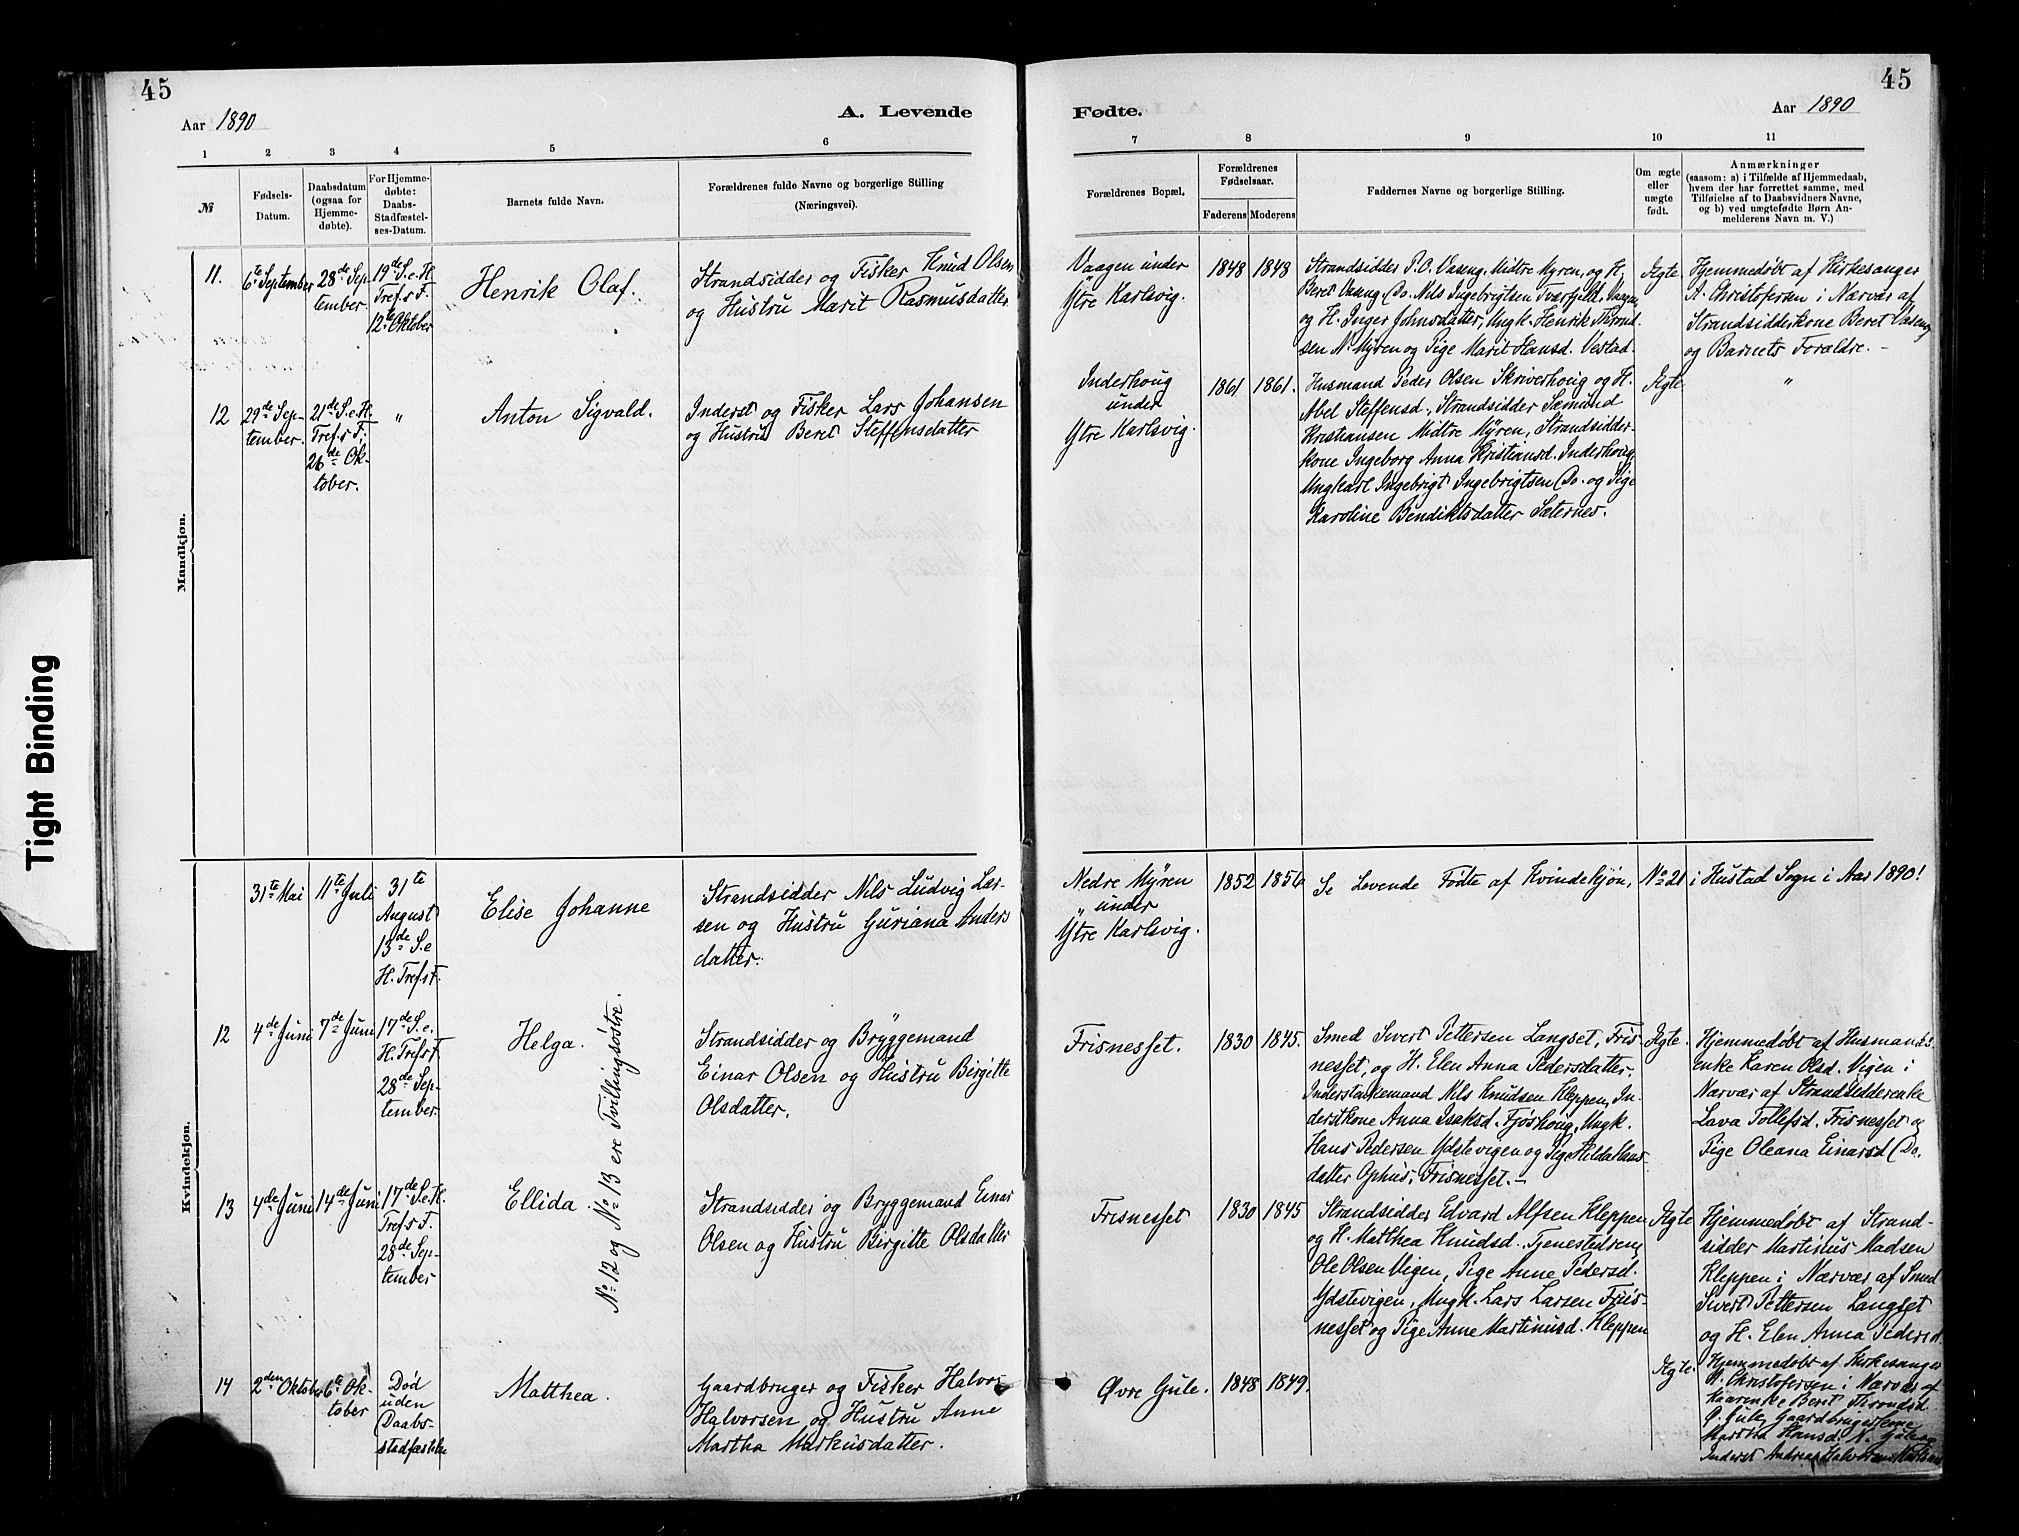 45
Aar 1890
A. Levende
1
2
3
4
5
6
№
Fødsels-
Datum.
Daabsdatum
(ogsaa for
Hjemme-
døbte).
For Hjemme-
døbte:
Daabs-
Stadfæstel-
ses-Datum.
Barnets fulde Navn.
Forældrenes fulde Navne og borgerlige Stilling
(Næringsvei).
Mandkjøn.
11.
6te September
28de Sep
tember.
19de S.e.H.
Tref.s F.
12te Oktober
Henrik Olaf.
Strandsidder og Fisker Knud Olsen
og Hustru Marit Rasmusdatter
12
29de Sep-
tember.
21de S.e.H.
Tref.s F.;
26de Ok-
tober.
"
Anton Sigvald.
Inderst og Fisker Lars Johansen
og Hustru Beret Steffensdatter
Kvindekjøn.
31te Mai
11te Juli
31te
August
13de S.e
H. Tref.s F.
Elise Johanne
Strandsidder Nils Ludvig Lar-
sen og Hustru Guriana Anders
datter.
12
4de Juni
7de Juni
17de S.e.
H. Tref.s F.
28de Sep-
tember
Helga.
Strandsidder og Bryggemand
Einar Olsen og Hustru Birgitte
Olsdatter.
No 12 og No 13 ere Tvillingsøstre.
13
4de Juni
14de Juni
17de S.e.H.
Tref.s F.
28de Sep-
tember
Ellida.
Strandsidder og Bryggemand Einar
Olsen og Hustru Birgitte Olsdatter
14
2den Oktober
6te Ok-
tober
Død
uden
Daabs-
stadfæstelse
Matthea.
Gaardbruger og Fisker Halvor
Halvorsen og Hustru Anne
Martha Markusdatter.
Tight Binding
45
Fødte.
Aar 1890
7
8
9
10
11
Forældrenes Bopæl.
Forældrenes
Fødselsaar.
Faderens
Moderens
Faddernes Navne og borgerlige Stilling.
Om ægte
eller
uægte
født.
Anmærkninger
(saasom: a) i Tilfælde af Hjemmedaab,
hvem der har forrettet samme, med
Tilføielse af to Daabsvidners Navne,
og b) ved uægtefødte Børn An-
melderens Navn m. V.)
Vaagen under
Ytre Karlsvig.
1848
1848
Strandsidder P.O. Vaseng, Midtre Myren, og H.
Beret Vaseng, Do. Nils Ingebrigtsen Tverfjeld, Vaagen,
og H. Inger Johnsdatter, Ungk. Henrik Thrond-
sen N. Myren og Pige Marit Hansd. Vestad.
Ægte
Hjemmedøbt af Kirkesanger
A. Christofersen i Nærvær af
Strandsidderkone Beret Vaseng
og Barnets Forældre. -
Inderhoug
under
Ytre Karlsvig.
1861
1861.
Husmand Peder Olsen Skriverhoug og H.
Abel Steffensd., Strandsidder Sæmund
Kristiansen Midtre Myren, Strandsidder-
kone Ingeborg Anna Kristiansd. Inderhoug,
Ungkarl Ingebrigt Ingebrigtsen Do. og Pige
Karoline Bendiktsdatter Sæternes.
Ægte
"
Nedre Myren
under
Ytre Karlsvig.
1852
1856
Se Levende Fødte af Kvindekjøn, No 21 i Hustad Sogn i Aar 1890!
Frisnesset.
1830
1845.
Smed Sivert Pettersen Langset, Fris-
nesset, og H. Elen Anna Pedersdatter,
Inderstenkemand Nils Knudsen Kleppen, In-
derstkone Anna Isaksd. Fjøshoug, Ungk.
Hans Pedersen Ydstevigen og Pige Hilda Hans-
datter Ophus, Frisnesset. -
Ægte.
Hjemmedøbt af Husmands-
enke Karen Olsd. Vigen i
Nærvær af Strandsidderenke
Lava Tollefsd. Frisnesset og
Pige Oleana Einarsd Do.
Frisnesset
1830
1845
Strandsidder Edvard Alfsen Kleppen
og H. Matthea Knudsd. Tjenestedreng
Ole Olsen Vigen, Pige Anne Pedersd.
Ydstevigen, Ungk. Lars Larsen Fris-
nesset og Pige Anne Martinusd. Kleppen
Ægte
Hjemmedøbt af Strand-
sidder Martinus Madsen
Kleppen i Nærvær af Smed
Sivert Pettersen Langset
og H. Elen Anna Pedersd.
Øvre Gule.
1848
1849.
Ægte
Hjemmedøbt af Kirkesanger
A. Christofersen i Nærvær af
Kaarenke Beret Throndsd.
Ø. Gule, Gaardbrugerkone
Martha Hansd. N. Gule og
Inderst Andreas Halvorsen